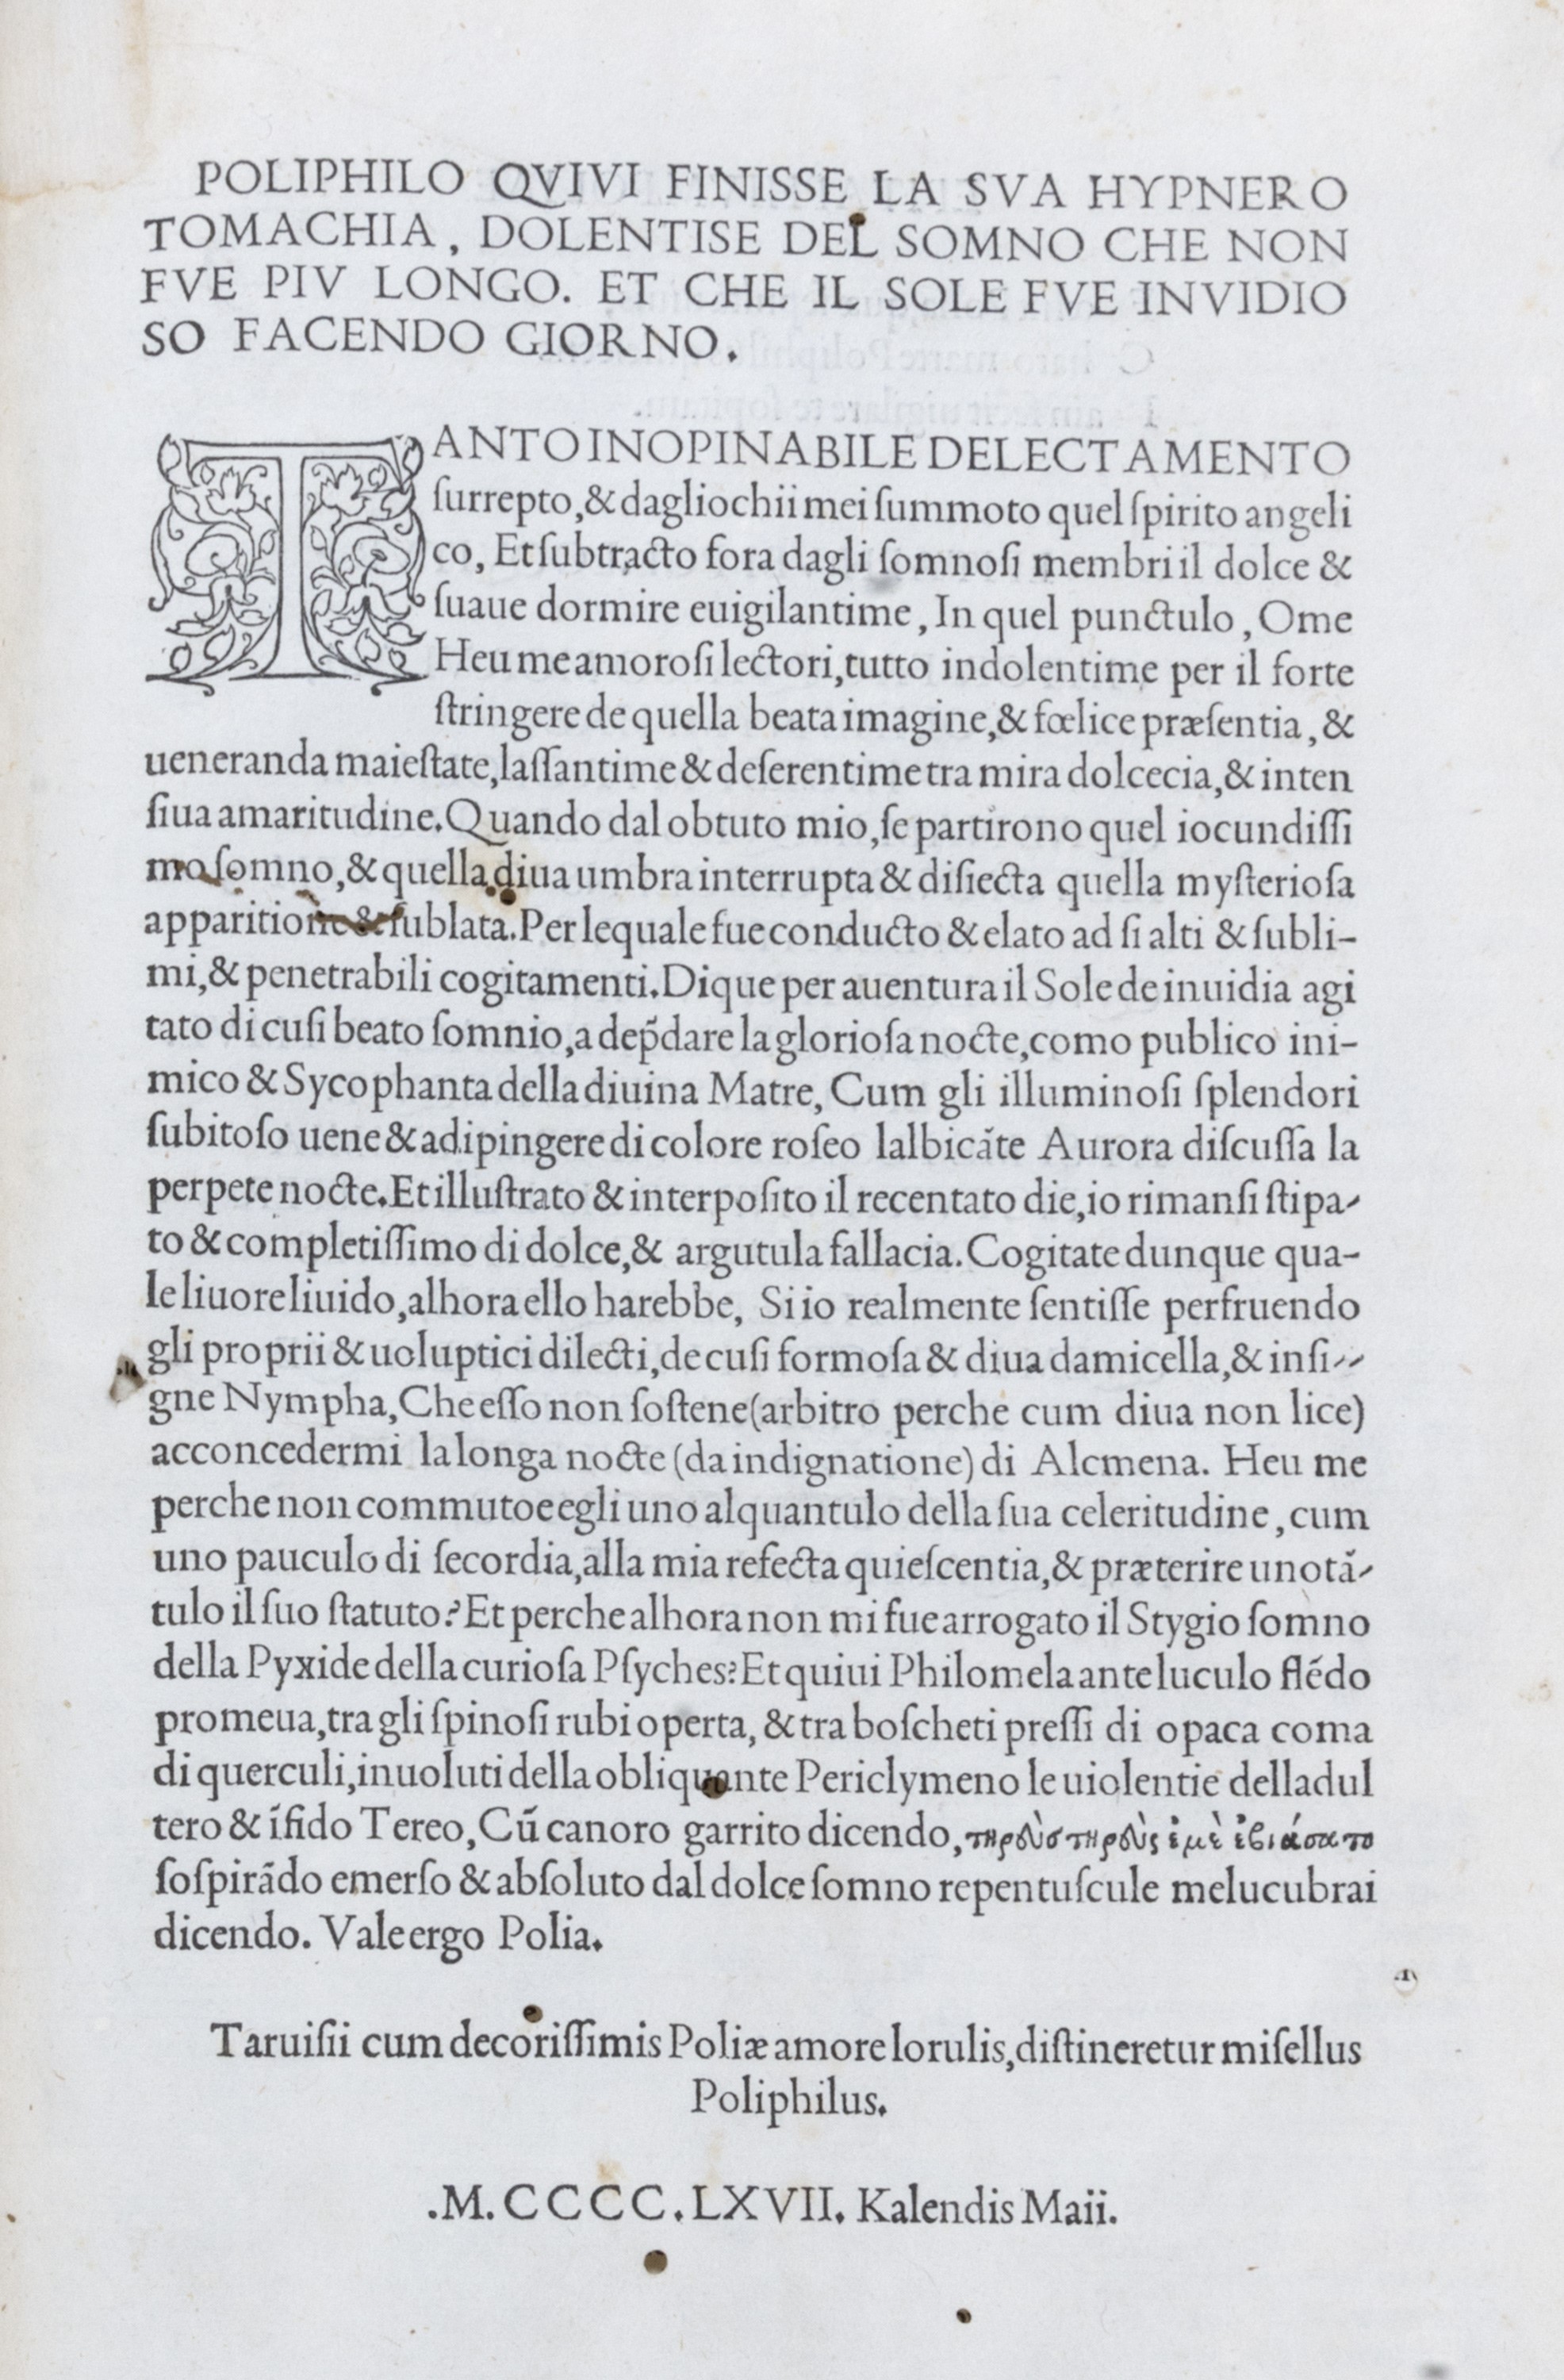 POLIPHILO QVIVI FINISSE LA SVA HYPNERO
TOMACHIA, DOLENTISE DEL SOMNO CHE NON
FVE PIV LONGO. ET CHE IL SOLE FVE INVIDIO
SO FACENDO GIORNO.
TANTO INOPINABILE DELECTAMENTO
ſurrepto, & dagliochii mei ſummoto quel ſpirito angeli
co, Et ſubtracto fora dagli ſomnoſi membri il dolce &
ſuaue dormire euigilantime, In quel punctulo, Ome
Heu me amoroſi lectori, tutto indolentime per il forte
ſtringere de quella beata imagine, & fœlice præſentia, &
ueneranda maieſtate, laſſantime & deſerentime tra mira dolcecia, & inten
ſiua amaritudine. Quando dal obtuto mio, ſe partirono quel iocundiſſi
mo ſomno, & quella diua umbra interrupta & diſiecta quella myſterioſa
apparitione & ſublata. Per lequale fue conducto & elato ad ſi alti & ſubli-
mi, & penetrabili cogitamenti. Dique per auentura il Sole de inuidia agi
tato di cuſi beato ſomnio, a dep̃dare la glorioſa nocte, como publico ini-
mico & Sycophanta della diuina Matre, Cum gli illuminoſi ſplendori
ſubitoſo uene & adipingere di colore roſeo lalbicãte Aurora diſcuſſa la
perpete nocte. Et illuſtrato & interpoſito il recentato die, io rimanſi ſtipa-
to & completiſſimo di dolce, & argutula fallacia. Cogitate dunque qua-
le liuore liuido, alhora ello harebbe, Si io realmente ſentiſſe perfruendo
gli proprii & uoluptici dilecti, de cuſi formoſa & diua damicella, & inſi-
gne Nympha, Che eſſo non ſoſtene (arbitro perche cum diua non lice)
acconcedermi la longa nocte (da indignatione) di Alcmena. Heu me
perche non commutoe egli uno alquantulo della ſua celeritudine, cum
uno pauculo di ſecordia, alla mia refecta quieſcentia, & præterire uno tã-
tulo il ſuo ſtatuto? Et perche alhora non mi fue arrogato il Stygio ſomno
della Pyxide della curioſa Pſyches? Et quiui Philomela ante luculo flẽdo
promeua, tra gli ſpinoſi rubi operta, & tra boſcheti preſſi di opaca coma
di querculi, inuoluti della obliquante Periclymeno le uiolentie delladul
tero & ĩfido Tereo, Cũ canoro garrito dicendo, τηροὺσ τηροὺς ἐμὲ ἐβιάσατο
ſoſpirãdo emerſo & abſoluto dal dolce ſomno repentuſcule melucubrai
dicendo. Vale ergo Polia.
Taruiſii cum decoriſſimis Poliæ amore lorulis, diſtineretur miſellus
Poliphilus.
.M.CCCC.LXVII. Kalendis Maii.